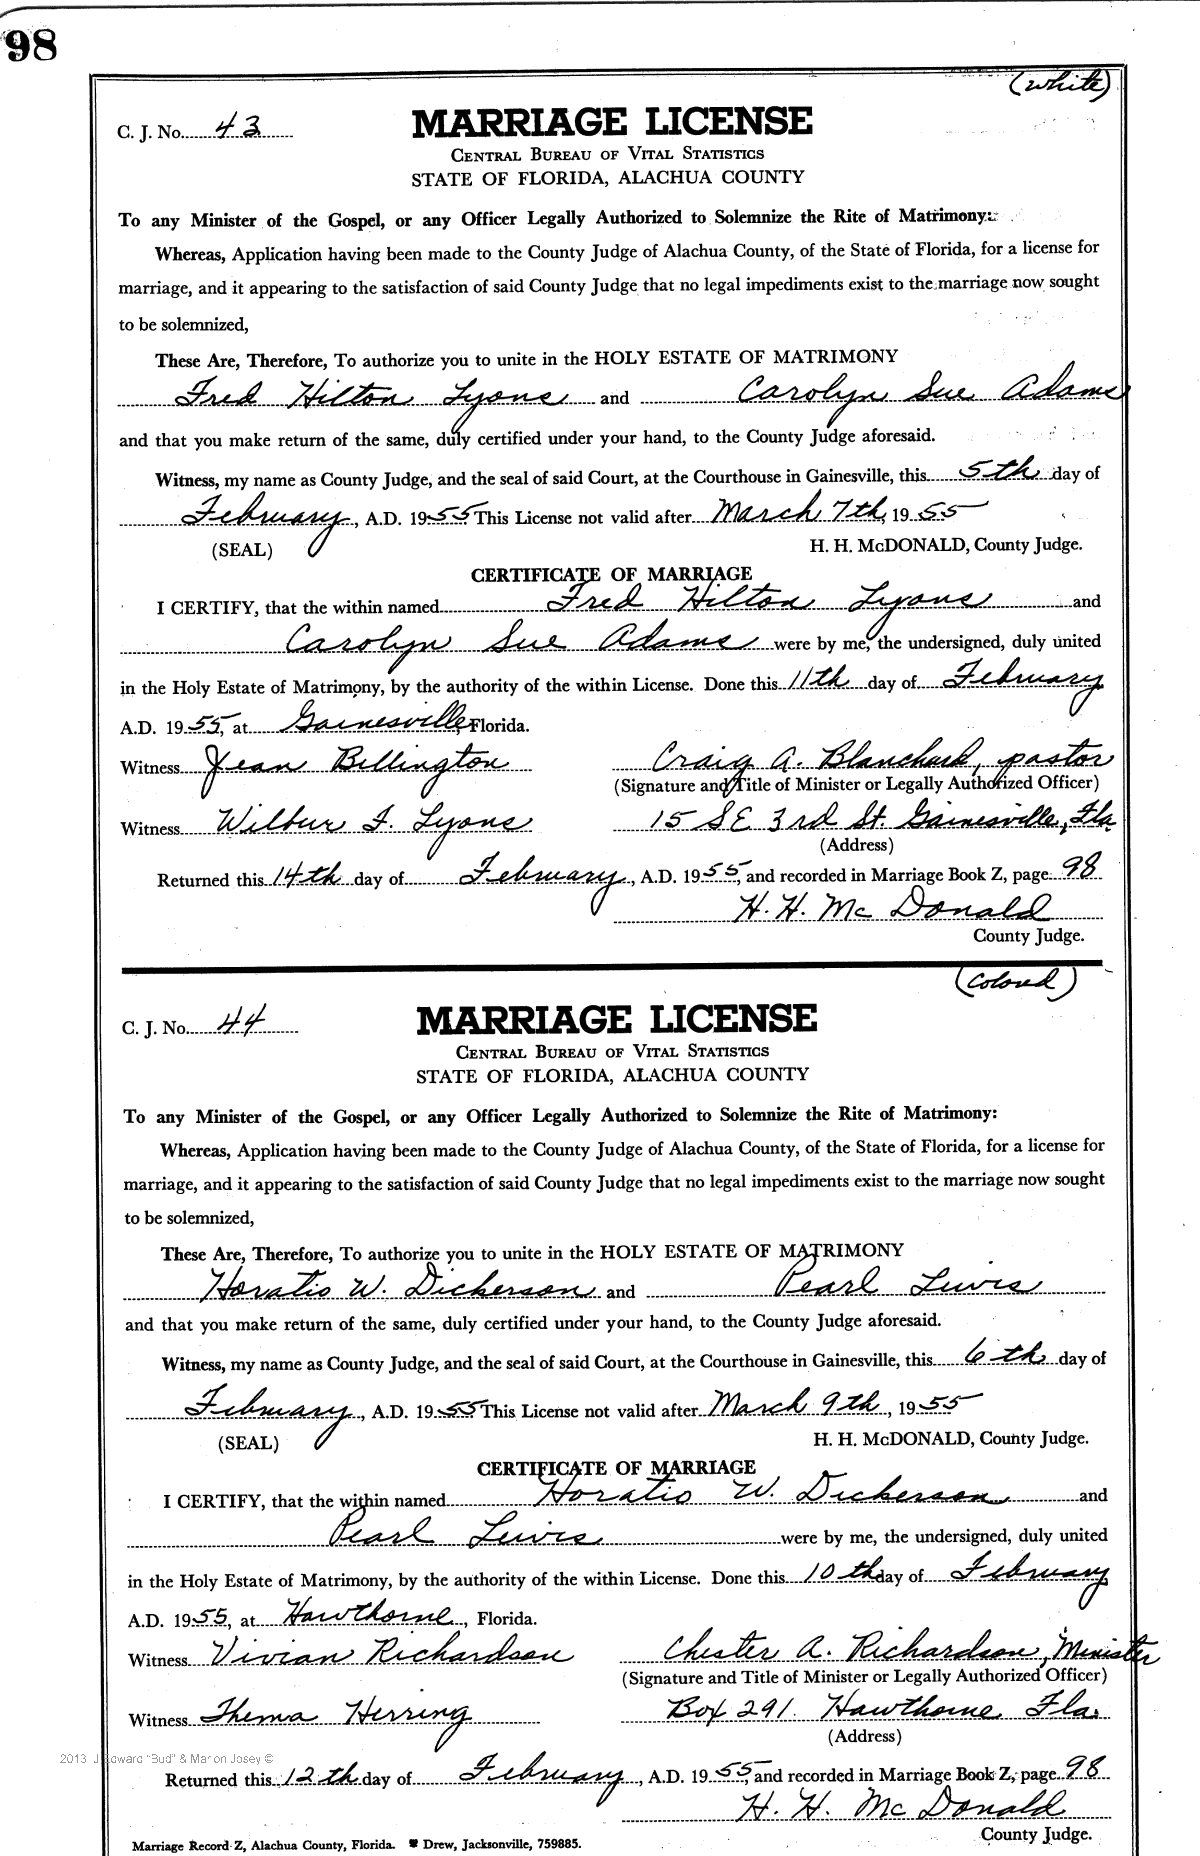 98
(white)
C. J. No. 43
MARRIAGE LICENSE
CENTRAL BUREAU OF VITAL STATISTICS
STATE OF FLORIDA, ALACHUA COUNTY
To any Minister of the Gospel, or any Officer Legally Authorized to Solemnize the Rite of Matrimony:
Whereas, Application having been made to the County Judge of Alachua County, of the State of Florida, for a license for
marriage, and it appearing to the satisfaction of said County Judge that no legal impediments exist to the marriage now sought
to be solemnized,
These Are, Therefore, To authorize you to unite in the HOLY ESTATE OF MATRIMONY
Fred Hilton Lyons and Carolyn Sue Adams
and that you make return of the same, duly certified under your hand, to the County Judge aforesaid.
Witness, my name as County Judge, and the seal of said Court, at the Courthouse in Gainesville, this 5th day of
February, A.D. 1955 This License not valid after March 7th, 1955
(SEAL) H. H. McDONALD, County Judge.
CERTIFICATE OF MARRIAGE
I CERTIFY, that the within named Fred Hilton Lyons and
Carolyn Sue Adams were by me, the undersigned, duly united
in the Holy Estate of Matrimony, by the authority of the within License. Done this 11th day of February
A.D. 1955, at Gainesville, Florida.
Witness Jean Billington Craig A. Blanchard, pastor
(Signature and Title of Minister or Legally Authorized Officer)
Witness Wilbur F. Lyons 15 SE 3rd St. Gainesville, Fla.
(Address)
Returned this 14th day of February, A.D. 1955, and recorded in Marriage Book Z, page 98
H. H. McDonald
County Judge.
(Colored)
C. J. No. 44
MARRIAGE LICENSE
CENTRAL BUREAU OF VITAL STATISTICS
STATE OF FLORIDA, ALACHUA COUNTY
To any Minister of the Gospel, or any Officer Legally Authorized to Solemnize the Rite of Matrimony:
Whereas, Application having been made to the County Judge of Alachua County, of the State of Florida, for a license for
marriage, and it appearing to the satisfaction of said County Judge that no legal impediments exist to the marriage now sought
to be solemnized,
These Are, Therefore, To authorize you to unite in the HOLY ESTATE OF MATRIMONY
Horatio W. Dickerson and Pearl Lewis
and that you make return of the same, duly certified under your hand, to the County Judge aforesaid.
Witness, my name as County Judge, and the seal of said Court, at the Courthouse in Gainesville, this 6th day of
February, A.D. 1955 This License not valid after March 9th, 1955
(SEAL) H. H. McDONALD, County Judge.
CERTIFICATE OF MARRIAGE
I CERTIFY, that the within named Horatio W. Dickerson and
Pearl Lewis were by me, the undersigned, duly united
in the Holy Estate of Matrimony, by the authority of the within License. Done this 10th day of February
A.D. 1955, at Hawthorne, Florida.
Witness Vivian Richardson Chester A. Richardson, Minister
(Signature and Title of Minister or Legally Authorized Officer)
Witness Thema Herring Box 291. Hawthorne Fla.
(Address)
2013 J Edward "Bud" & Marion Josey ©
Returned this 12th day of February, A.D. 1955, and recorded in Marriage Book Z, page 98
H. H. McDonald
County Judge.
Marriage Record Z, Alachua County, Florida. Drew, Jacksonville, 759885.